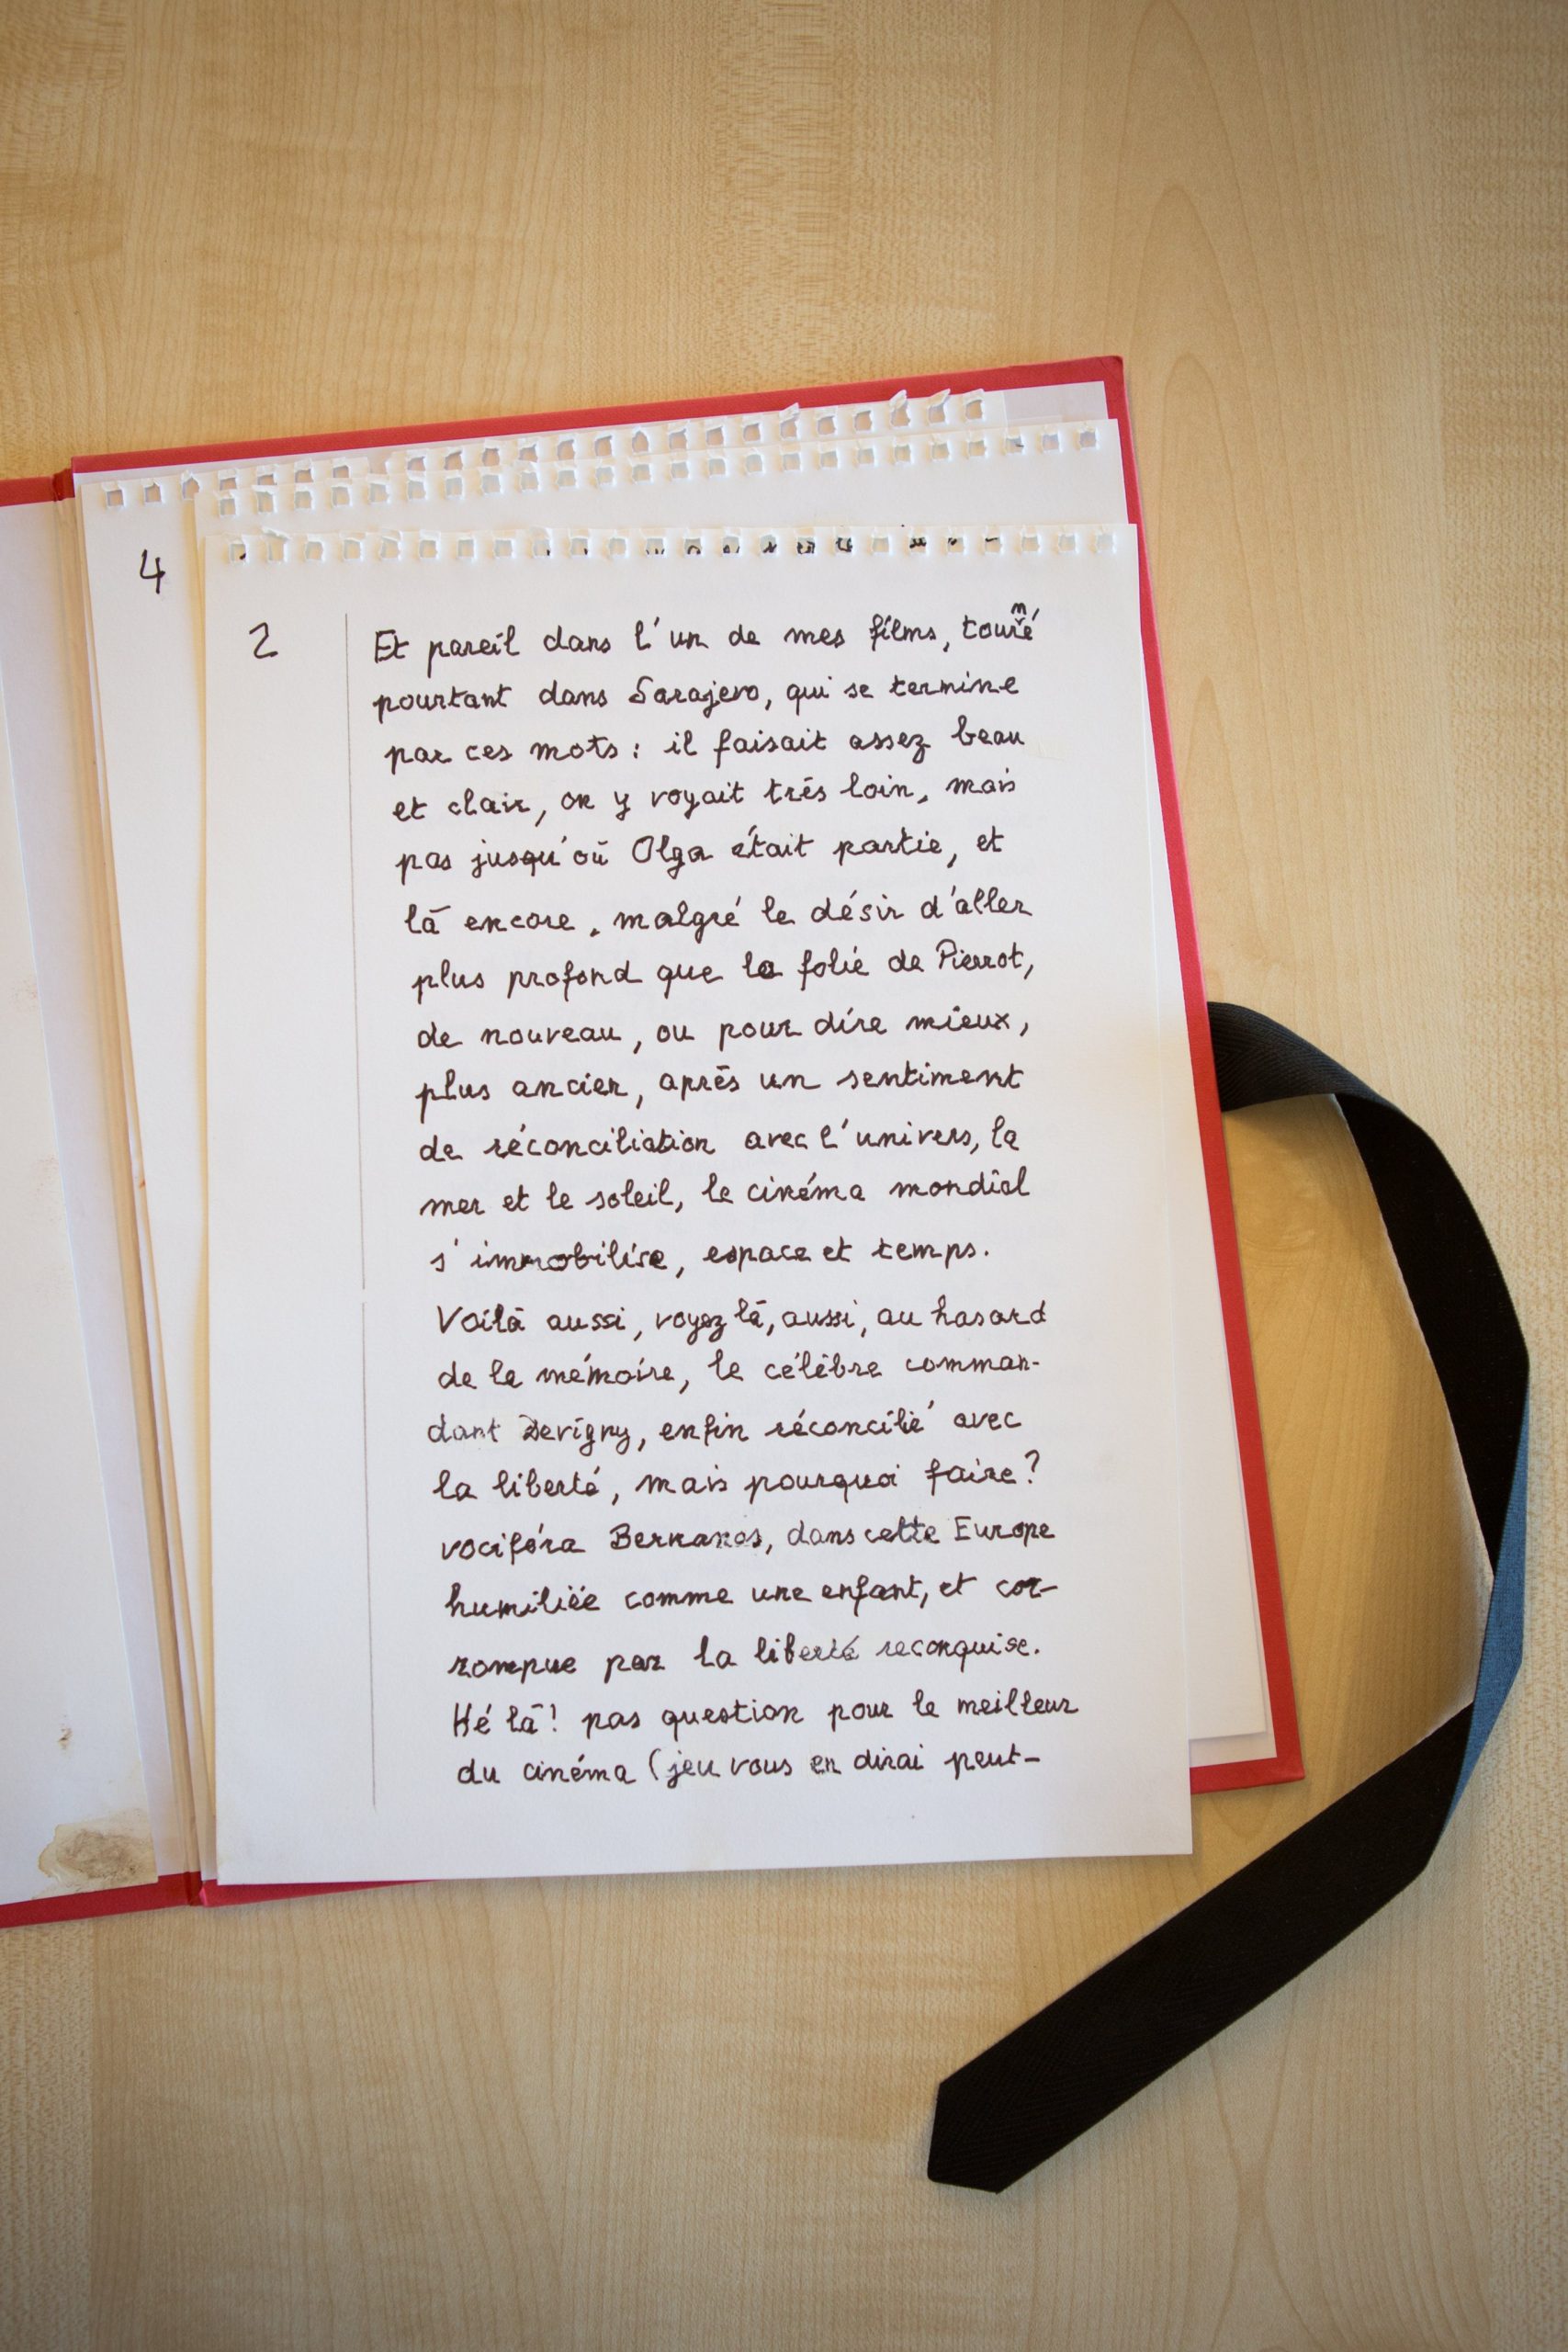 4
2
Et pareil dans l'un de mes films, tourné
pourtant dans Sarajevo, qui se termine
par ces mots : il faisait assez beau
et clair, on y voyait très loin, mais
pas jusqu'où Olga était partie, et
là encore, malgré le désir d'aller
plus profond que la folie de Pierrot,
de nouveau, ou pour dire mieux,
plus ancien, après un sentiment
de réconciliation avec l'univers, la
mer et le soleil, le cinéma mondial
s'immobilise, espace et temps.
Voilà aussi, voyez là, aussi, au hasard
de la mémoire, le célèbre comman-
dant Devigny, enfin réconcilié avec
la liberté, mais pourquoi faire ?
vociféra Bernanos, dans cette Europe
humiliée comme une enfant, et cor-
rompue par la liberté reconquise.
Hé là ! pas question pour le meilleur
du cinéma (jeu vous en dirai peut-